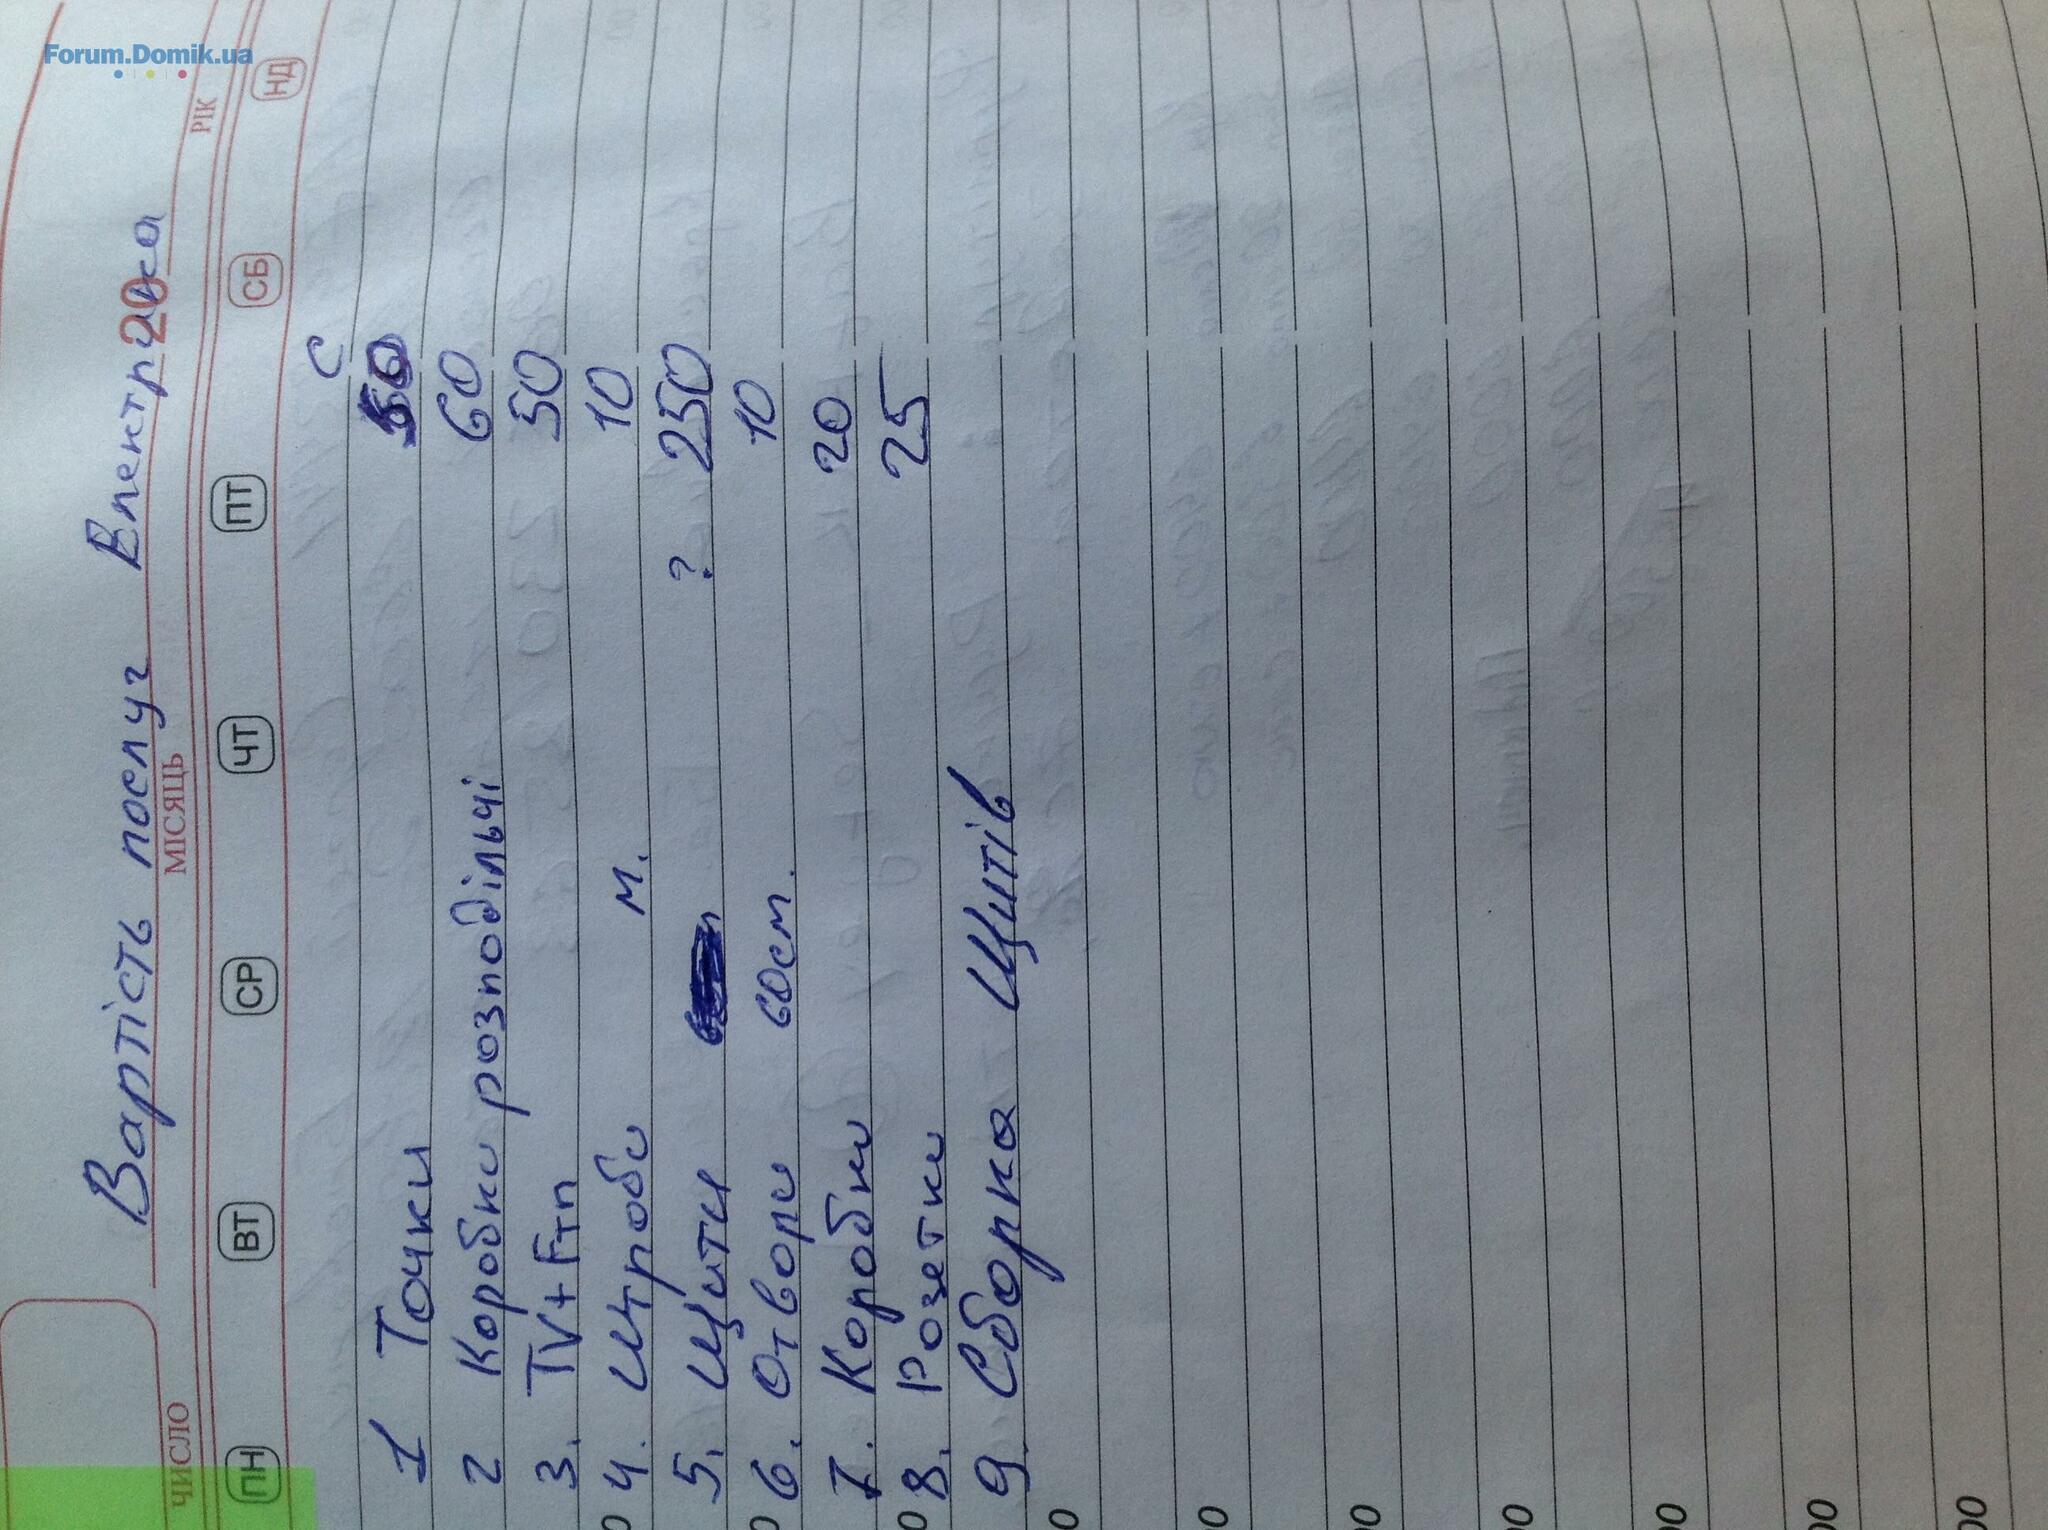 Forum.Domik.ua
Вартість послуг Електрика
ЧИСЛО МІСЯЦЬ 20 РІК
ПН ВТ СР ЧТ ПТ СБ НД
С
1 Точки 50
2 Коробки розподільчі 60
3. TV+Fтп 50
4. Штроби м. 10
5. Щити ? 250
6. Отвори 60ст. 10
7. Коробки 20
8. Розетки 25
9. Сборка Щитів